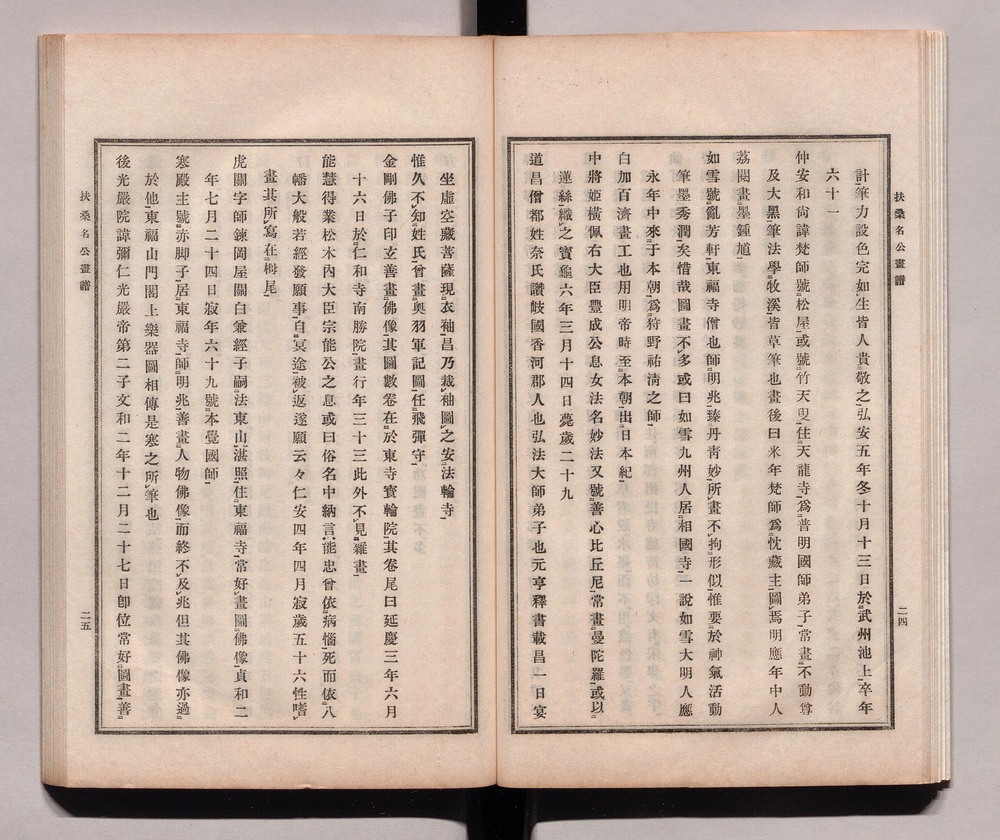 扶桑名公畫譜
二四
計、筆力設色完如生皆人貴敬之、弘安五年冬十月十三日於武州池上卒年
六十一
仲安和尙諱梵師號松屋、或號竹天叟、住天龍寺、爲普明國師弟子、常畫不動尊
及大黑筆法學牧溪、皆草筆也畫後曰米年梵師爲忱藏主圖焉明應年中人
茘閑畫墨鍾馗
如雪號亂芳軒、東福寺僧也師明兆、臻丹靑妙、所畫不拘形似、惟要於神氣活動
筆墨秀潤、矣惜哉圖畫不多或曰如雪九州人居相國寺、一說如雪大明人應
永年中來于本朝、爲狩野祐淸之師
白加百濟畫工也用明帝時至本朝、出日本紀
中將姬橫佩右大臣豐成公息女法名妙法又號善心比丘尼、常畫曼陀羅、或以
蓮絲織之寶龜六年三月十四日薨歲二十九
道昌僧都姓奈氏讚岐國香河郡人也弘法大師弟子也元亨釋書載昌一日宴
坐虛空藏菩薩現衣袖、昌乃裁袖圖之安法輪寺
惟久不知姓氏曾畫奧羽軍記圖、任飛彈守
金剛佛子印玄善畫佛像、其圖數卷在於東寺寳輪院、其卷尾曰延慶三年六月
十六日於仁和寺南勝院、畫行年三十三此外不見雜畫
能慧得業松木內大臣宗能公之息或曰俗名中納言能忠曾依病惱死而依八
幡大般若經發願事、自冥途被返遂願云々仁安四年四月寂歲五十六性嗜
畫其所寫在栂尾
虎關字師鍊岡屋關白兼經子嗣法東山湛照、住東福寺、常好畫圖佛像、貞和二
年七月二十四日寂年六十九號本覺國師
寒殿主號赤脚子、居東福寺、師明兆、善畫人物佛像、而終不及兆但其佛像亦過
於他、東福山門閣上樂器圖相傳是寒之所筆也
後光嚴院諱彌仁光嚴帝第二子文和二年十二月二十七日卽位常好圖畫、善
扶桑名公畫譜
二五